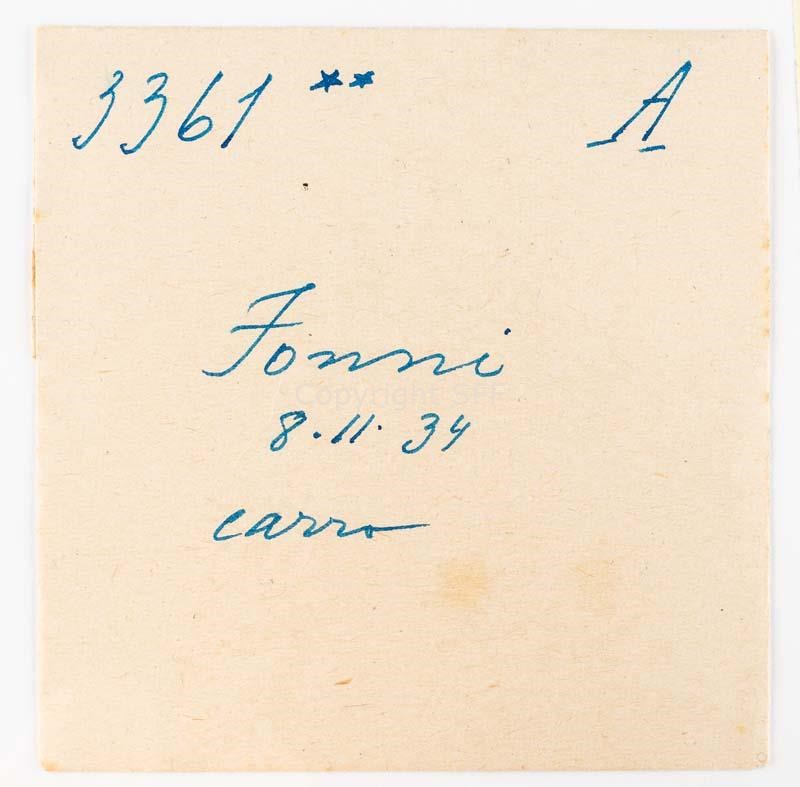 3361 ** A
Fonni
Copyright SFF
8.11.34
carro